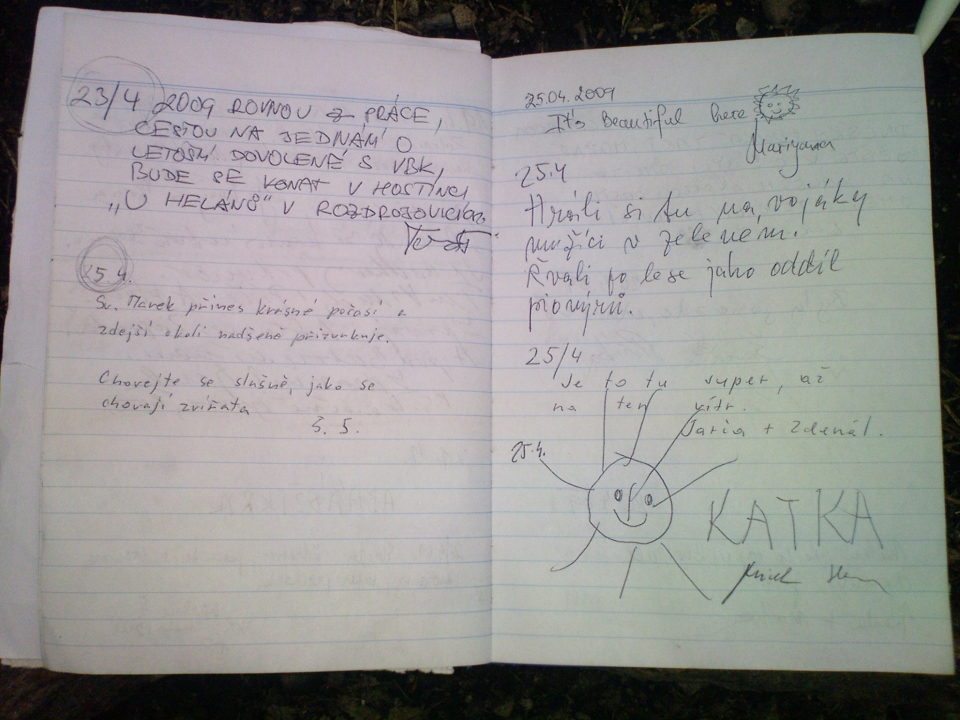 23/4 2009 ROVNOU Z PRÁCE,
CESTOU NA JEDNÁNÍ O
LETOŠNÍ DOVOLENÉ S VBK,
BUDE SE KONAT V HOSTINCI
„U HELÁNŮ" V ROZDROJOVICÍCH.
25 4.
Sv. Marek přines krásné počasí a
zdejší okolí nadšeně přizvukuje.
Chovejte se slušně, jako se
chovají zvířata
Š. S.
25.04.2009
It's beautiful here
Mariyana
25.4
Hráli si tu na vojáky
mužíci v zeleném.
Řvali po lese jako oddíl
pionýrů.
25/4
Je to tu super, až
na ten vítr.
+ Zdenál.
25.4.
KATKA